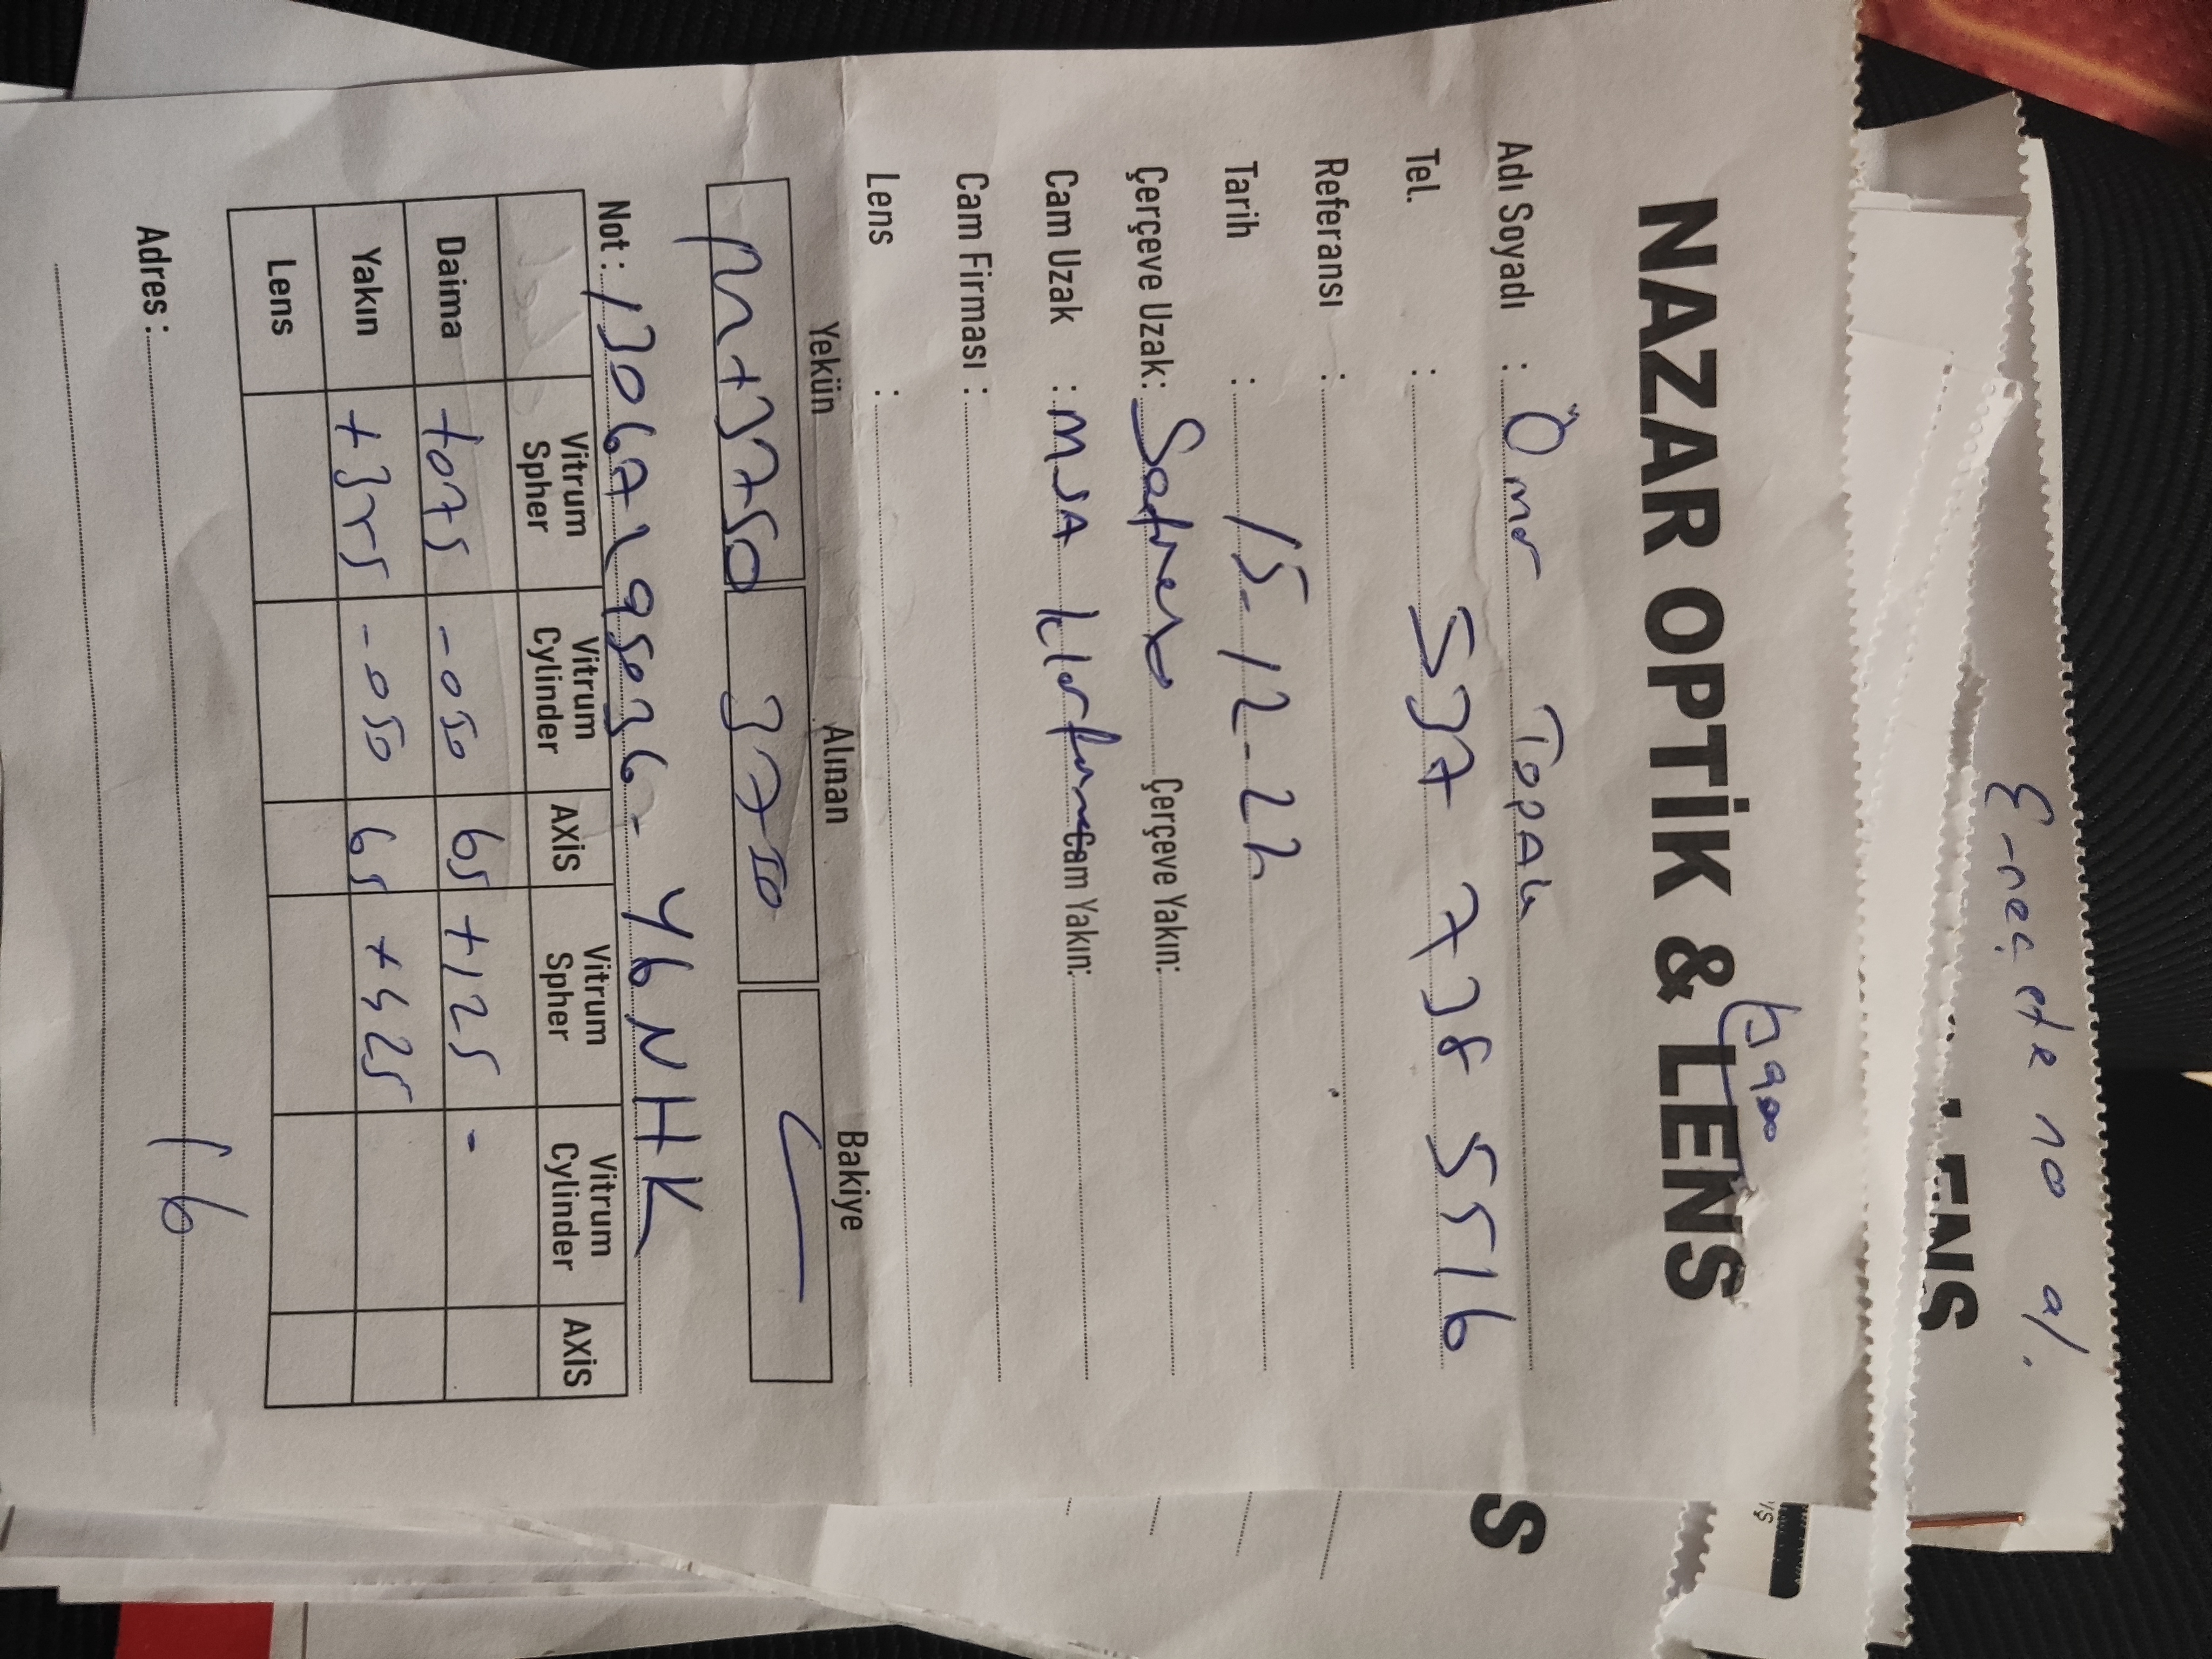 E-reçete no al.
NAZAR OPTİK & LENS
Adı Soyadı : Ömer Topal
Tel. : 537 738 5516
Referansı :
Tarih : 15-12-22
Çerçeve Uzak: Çerçeve Yakın:
Cam Uzak : MSA Cam Yakın:
Cam Firması :
Lens :
Yekün Alınan Bakiye
M+3750 3750
Not : 13067295036 - Y6NHK
Vitrum Spher Vitrum Cylinder AXİS Vitrum Spher Vitrum Cylinder AXİS
Daima +075 -050 65 +125 -
Yakın +325 -050 65 +425
Lens
Adres : 16